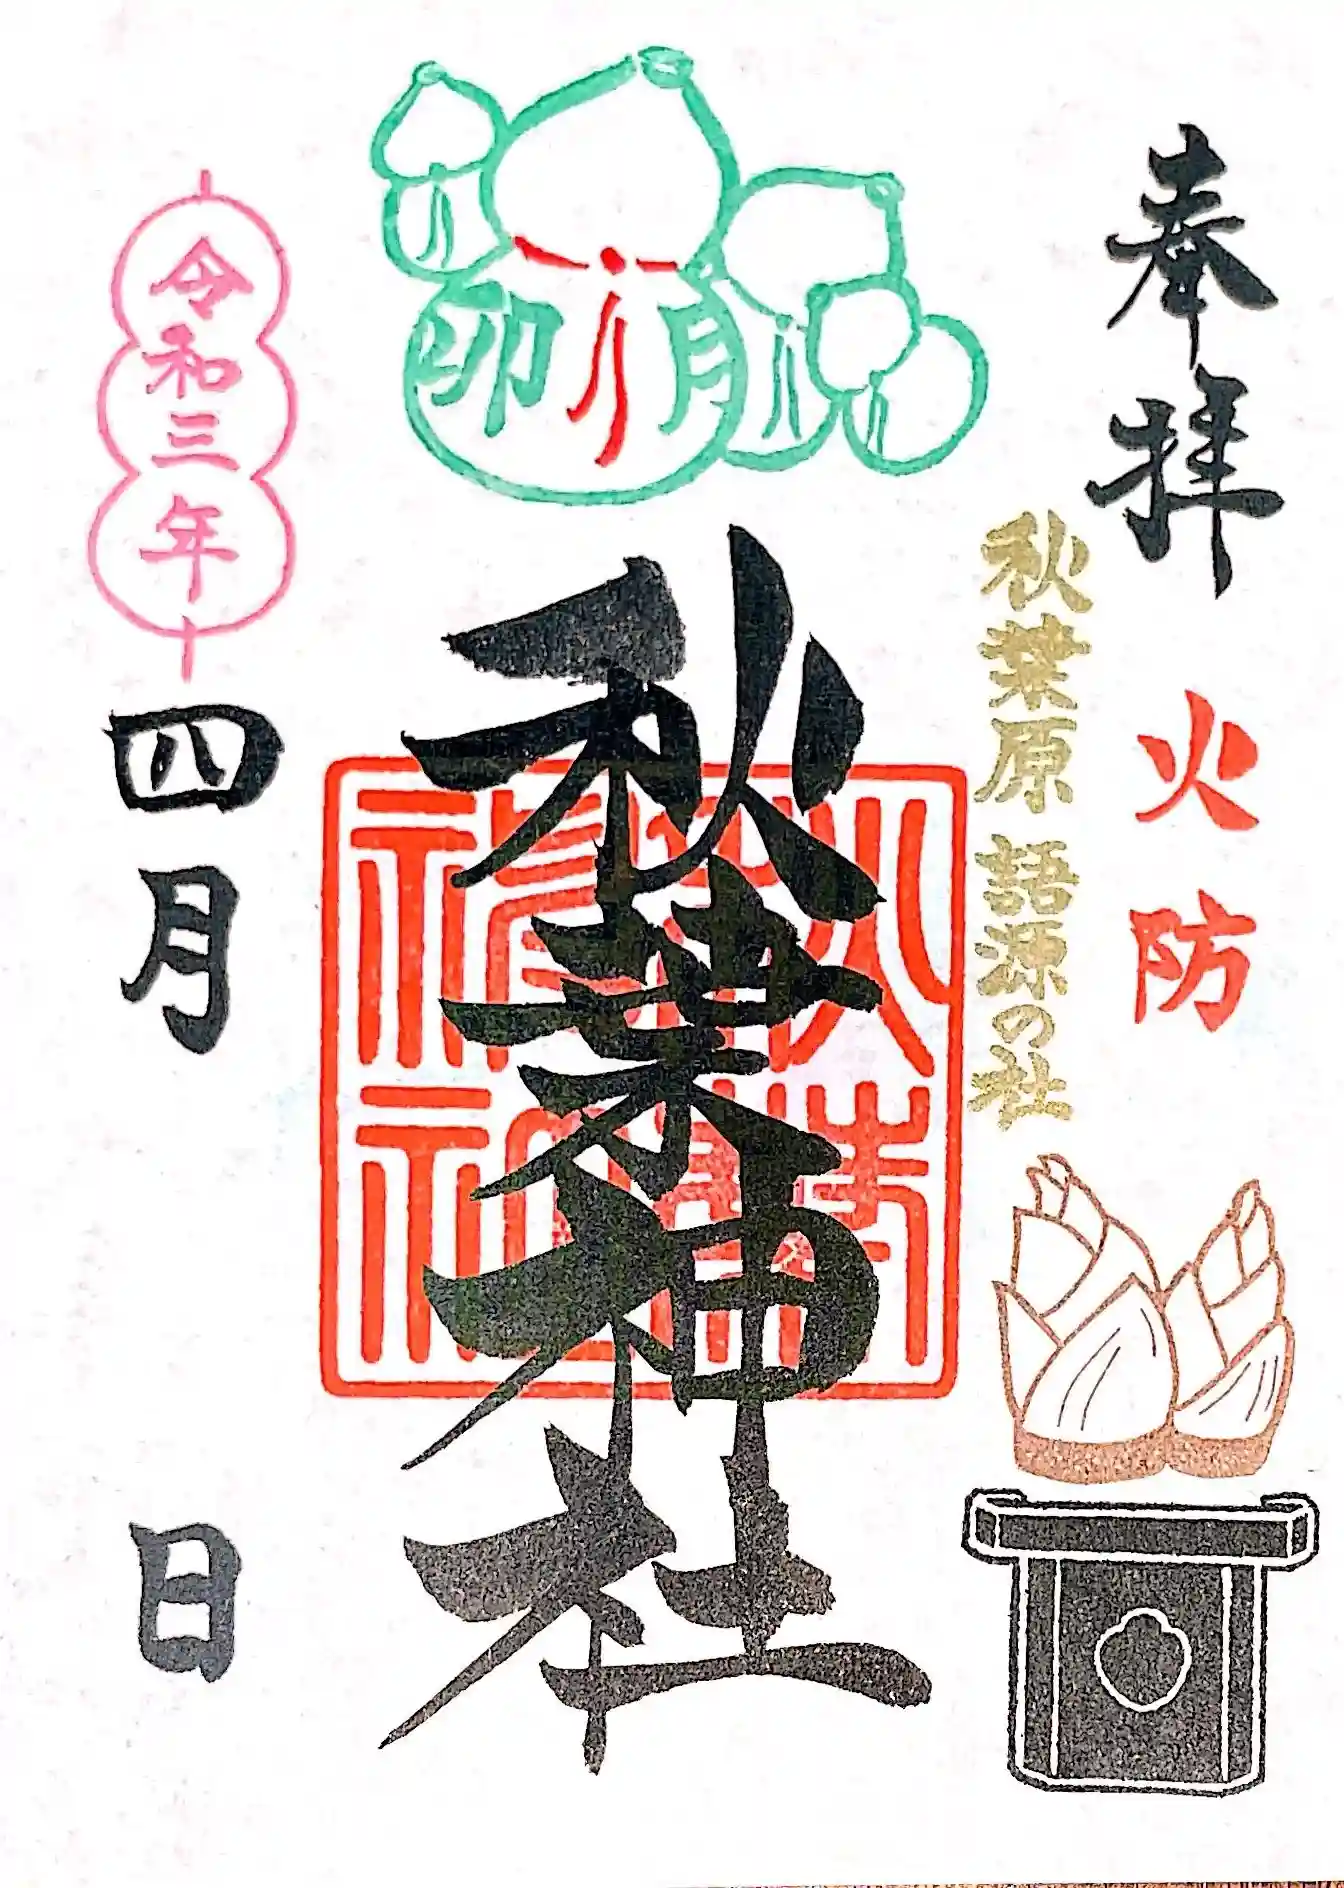 奉拝
火防
秋葉原 語源の社
卯月
秋葉神社
秋葉神社
令和三年
四月 日